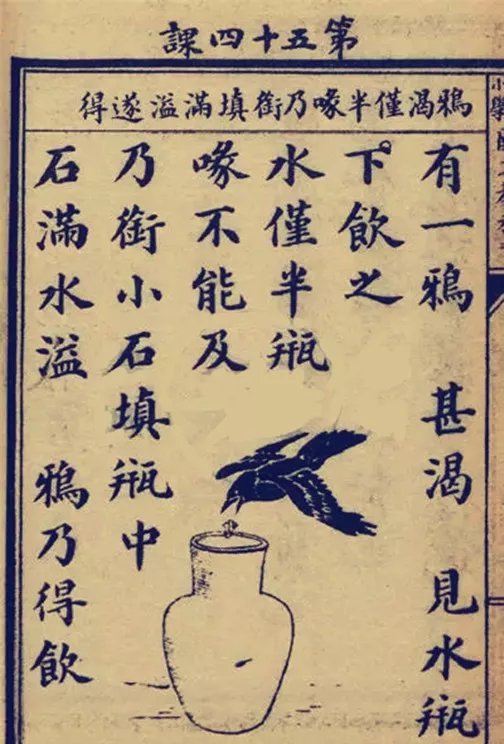 第五十四課
鴉渴僅半喙乃銜填滿溢遂得
有一鴉 甚渴 見水瓶
下飲之
水僅半瓶
喙不能及
乃銜小石填瓶中
石滿水溢 鴉乃得飲